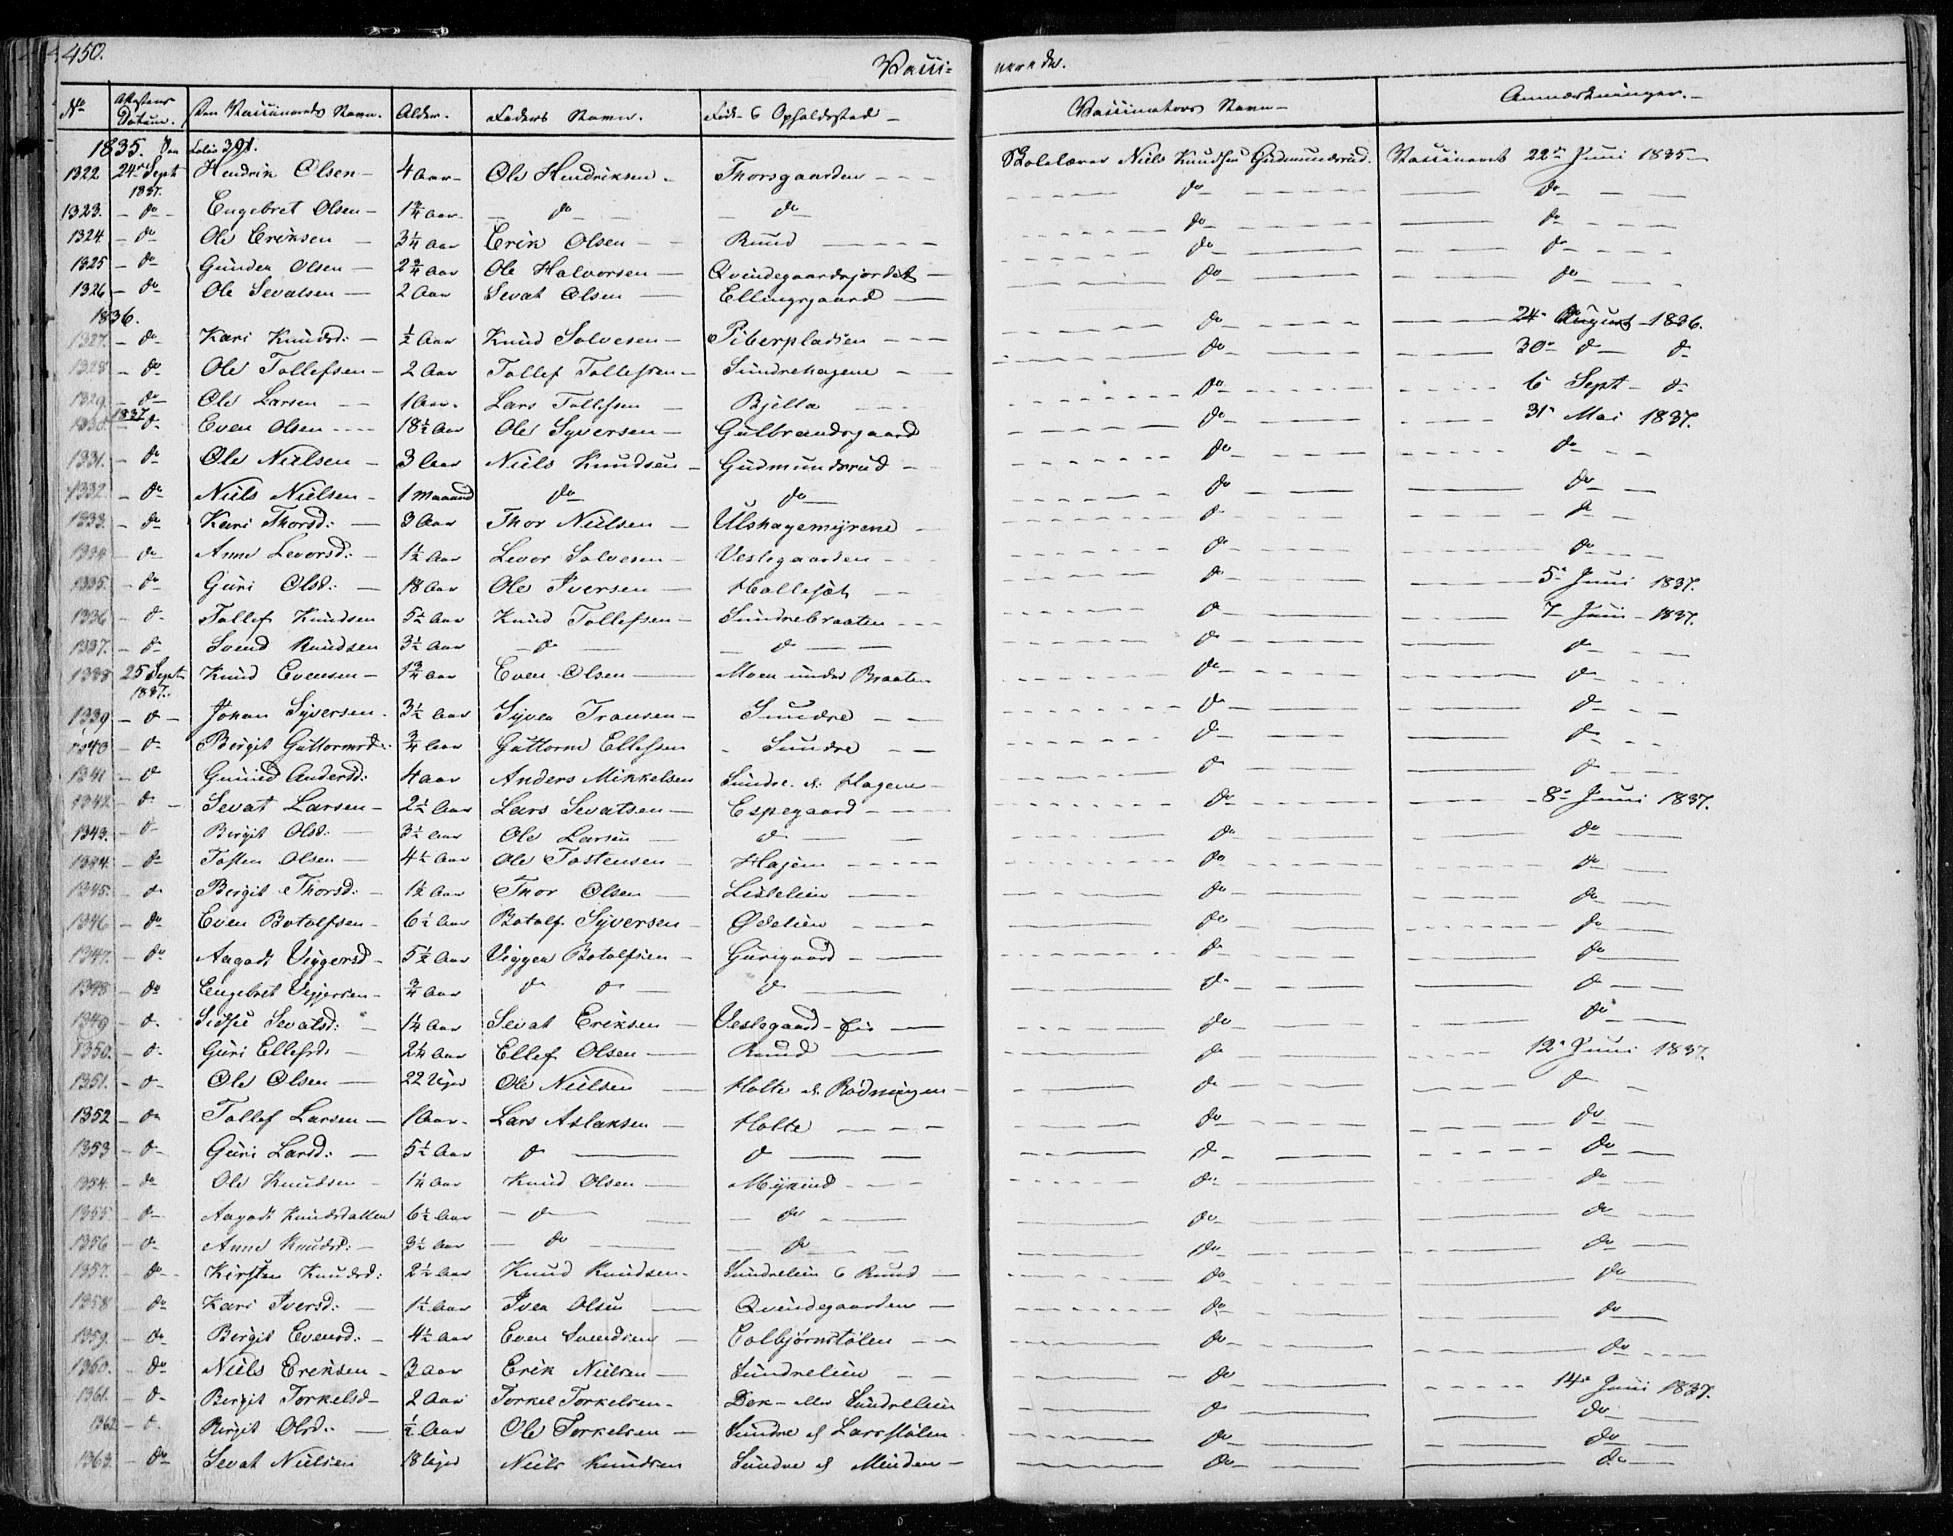 450.
Vacci= nerede.
No Attestens Datum. Den Vaccineredes Navn. Alder. Faders Navn. Føde- & Opholdssted - Vaccinateurs Navn - Anmærkninger. -
1835. Fra Folio 391.
1322 24de Sept 1837. Hendrik Olsen - 4 Aar - Ole Hendriksen - Thorsgaarden - Skolelærer Niels Knudsen Gudmundsrud. Vaccineret 22de Juni 1835 -
1323. - do - Engebret Olsen - 1 3/4 Aar - do - do - do - do
1324 - do Ole Eriksen - 3 1/4 Aar Erik Olsen - Ruud - do - do
1325 - do Gunder Olsen - 2 3/4 Aar Ole Halvorsen - Qvindegaardsjordet - do - do
1326 - do Ole Sevatsen - 2 Aar Sevat Olsen - Ellingsgaard - do - do
1836.
1327. - do Kari Knudsd: - 1/2 Aar Knud Solvesen - Piberpladsen - do - 24de August 1836.
1328 - do Ole Tollefsen - 2 Aar Tollef Tollefsen - Sundrehagene - do - 30te do do
1329 - do Ole Larsen - 1 Aar - Lars Tollefsen - Bjella - do - 6 Sept - do
1837
1330 - do Even Olsen - 18 1/2 Aar Ole Syversen - Gulbrandsgaard - do - 31te Mai 1837.
1331. - do Ole Nielsen - 3 Aar Niels Knudsen - Gudmundsrud - do - do
1332 - do Niels Nielsen - 1 Maaned do do - do - do
1333. - do Kari Thorsd: - 3 Aar Thor Nielsen - Ulshagemyrene - do - do
1334 - do Anne Levorsd: - 1 1/2 Aar Levor Solvesen - Veslegaarden - do - do
1335. - do Guri Olsd: - 18 Aar Ole Iversen - Hallesæt - do - 5te Juni 1837.
1336 - do Tollef Knudsen 5 1/2 Aar Knud Tollefsen - Sundrebraaten - do - 7 Juni - 1837.
1337. - do Svend Knudsen 3 1/2 Aar - do - do - do - do
1338 25 Sept 1837. Knud Evensen - 1 3/4 Aar Even Olsen - Moen under Braaten - do - do
1339 - do - Johan Syversen - 3 1/2 Aar Syver Fransen - Sundre - do - do
1340 - do Bergit Guttormsd: 3/4 Aar Guttorm Ellefsen - Sundre - do - do
1341 - do Gunild Andersd: 4 Aar Anders Mikkelsen Sundre e. Hagene - do - do
1342. - do - Sevat Larsen - 2 1/2 Aar Lars Sevatsen - Espegaard - do - 8de Juni 1837.
1343. - do Bergit Olsd: 3 1/2 Aar Ole Larsen do - do - do
1344. - do Tosten Olsen - 4 1/2 Aar Ole Tostensen - Hagen - do - do
1345. - do Bergit Thorsd: - 1 1/2 Aar Thor Olsen - Listelien - do - do
1346 - do Even Botolfsen - 6 1/2 Aar Botolf Syversen - Ødelien - do - do
1347. - do Aagodt Viggersd - 5 1/2 Aar Vigger Botolfsen - Gurigaard - do - do
1348 - do Engebret Viggersen - 3/4 Aar do do - do - do - do
1349 - do Sidsel Sevatsd: - 1 1/4 Aar Sevat Eriksen - Veslegaard - do - do
1350. - do Guri Ellefsd: 2 1/4 Aar Ellef Olsen - Ruud - do - 12te Juni 1837.
1351. - do Ole Olsen - 22 Uger Ole Nielsen - Holte e. Rødningen - do - do
1352 - do Tollef Larsen - 1 Aar - Lars Aslaksen - Holte - do - do
1353 - do Guri Larsd: - 5 1/2 Aar do - do - do - do
1354. - do Ole Knudsen - 1 1/4 Aar Knud Olsen - Myrind - do - do
1355 - do Aagodt Knudsdatter 6 1/2 Aar - do - do - do - do
1356 - do Anne Knudsd: - 3 1/2 Aar - do - do - do - do
1357. - do Kirsten Knudsd: 2 1/2 Aar Knud Knudsen - Sundrelien & Ruud - do - do
1358 - do Kari Iversd: - 1 1/2 Aar Iver Olsen - Qvindegaarden - do - do
1359. - do Bergit Evensd: - 4 1/2 Aar Even Svendsen - Colbjørnstølen - do - do
1360. - do Niels Eriksen - 3 Aar Erik Nielsen - Sundrelien - do - do
1361. - do Bergit Torkelsd - 2 Aar Torkel Torkelsen - Dek - eller Sundrelien - do - 14de Juni 1837.
1362 - do Bergit Olsd: - 1/2 Aar Ole Torkelsen - Sundre e. Larsstølen - do - do
1363. - do Sevat Nielsen 18 Uger Niels Knudsen Sundre e. Minden - do - do